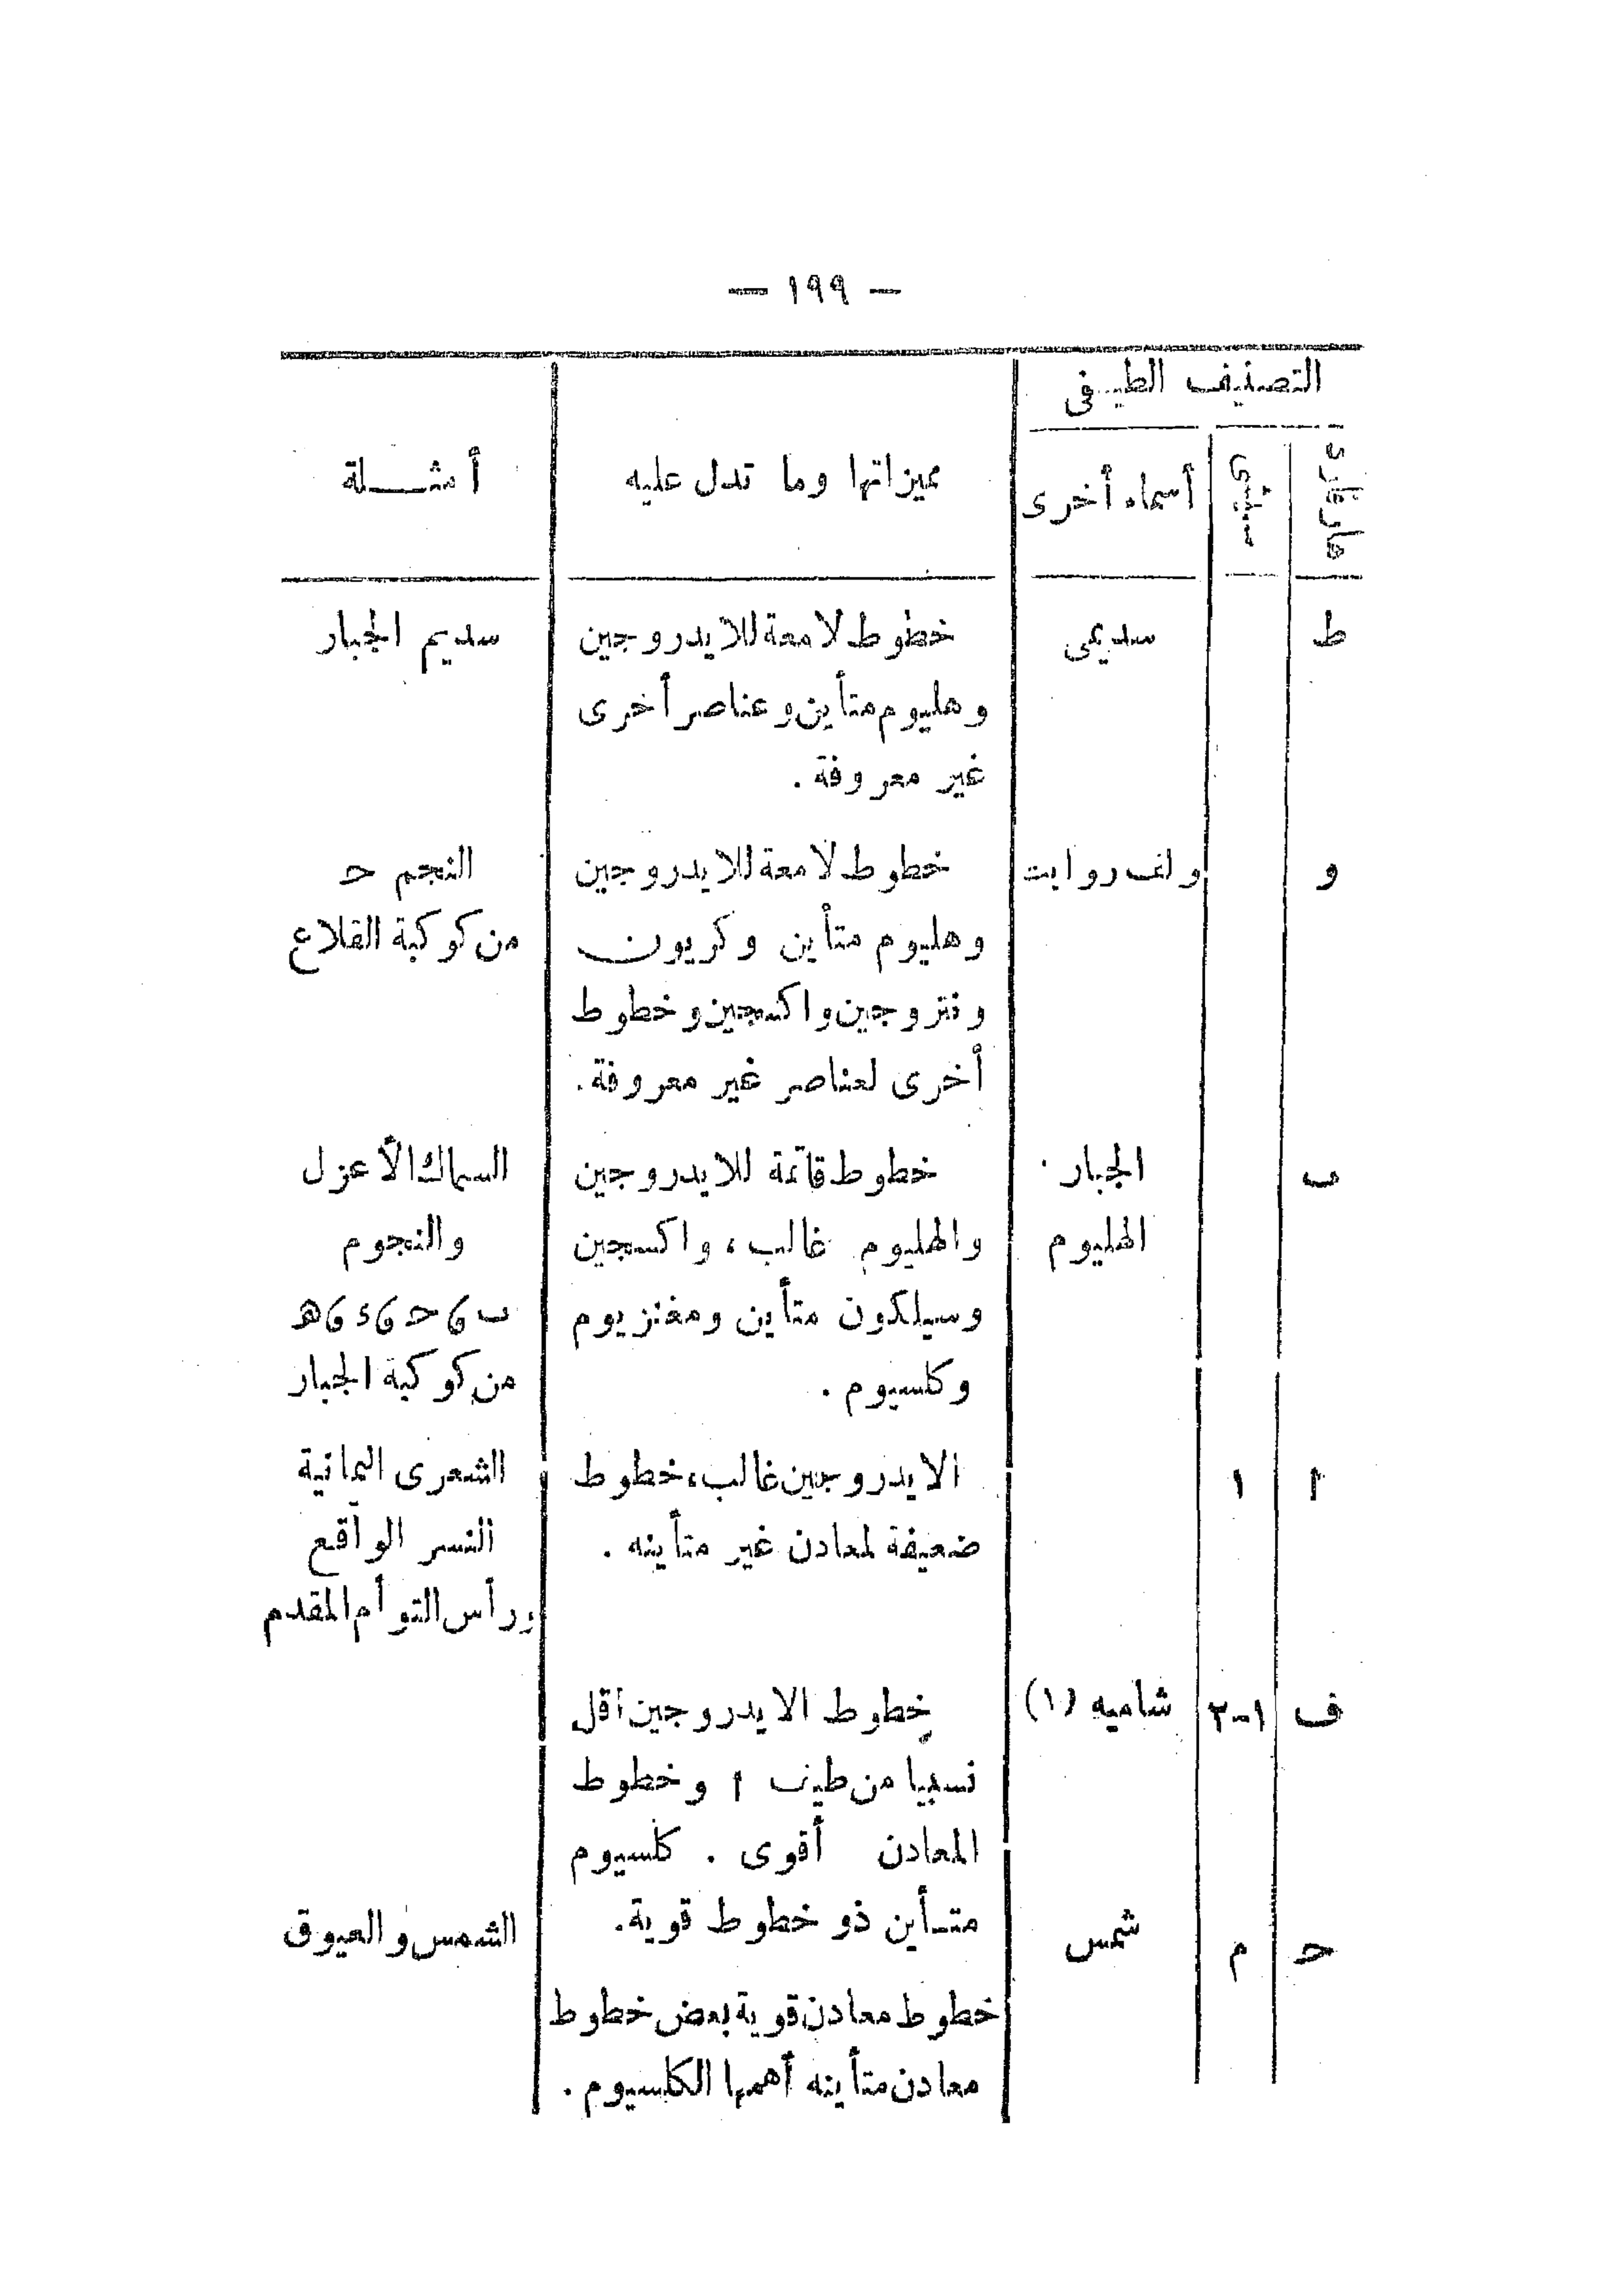 — ١٩٩ —
التصنيف الطيفى
هارفارد
سيتشى
أسماء أخرى
مميزاتها وما تدل عليه
أمثلة
ط
سديمى
خطوط لامعة للايدروجين
وهليوم متأين وعناصر أخرى
غير معروفة .
سديم الجبار
و
ولف روايت
خطوط لامعة للايدروجين
وهليوم متأين وكربون
ونتروجين واكسجين وخطوط
أخرى لعناصر غير معروفة .
النجم حـ
من كوكبة القلاع
ب
الجبار
الهليوم
خطوط قاتمة للايدروجين
والهليوم غالب، واكسجين
وسيلكون متأين ومغنزيوم
وكلسيوم .
السماك الأعزل
والنجوم
ب ، حـ ، ء ، هـ
من كوكبة الجبار
ا
١
الايدروجين غالب، خطوط
ضعيفة لمعادن غير متأينه .
الشعرى اليمانية
النسر الواقع
ورأس التوأم المقدم
ف
١-٢
شاميه (١)
خطوط الايدروجين أقل
نسبيا من طيف ا وخطوط
المعادن أقوى . كلسيوم
متأين ذو خطوط قوية.
حـ
م
شمس
خطوط معادن قوية بعض خطوط
معادن متأينه أهمها الكلسيوم .
الشمس والعيوق